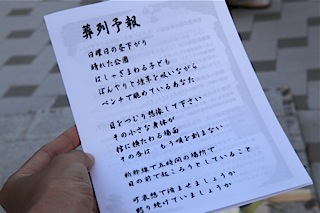 葬列予報
日曜日の昼下がり
晴れた公園
はしゃぎまわる子ども
ぼんやりと煙草を吸いながら
ベンチで眺めているあなた
目をつむり想像して下さい
その小さな身体が
横たわる場面
その口は もう唄を刻まない
新幹線で五時間の場所で
目の前で起ころうとしていること
可哀想で済ませましょうか
黙り続けていましょうか